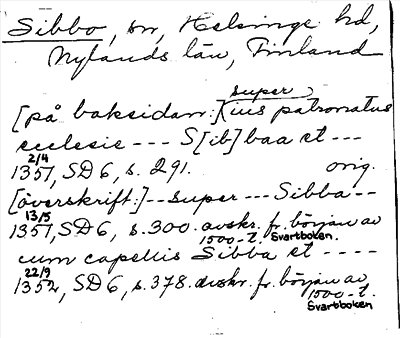 Sibbo, sn, Helsinge hd,
Nylands län, Finland
super
[på baksidan:] (ius patronatus
ecclesie --- S[ib]baa et ---
2/4
1351, SD 6, s. 291. orig.
[överskrift:] -- super --- Sibba --
13/5
1351, SD 6, s. 300. avskr. fr. början av
1500-t. Svartboken.
cum capellis Sibba et ----
22/9
1352, SD 6, s. 378. avskr. fr. början av
1500-t.
Svartboken